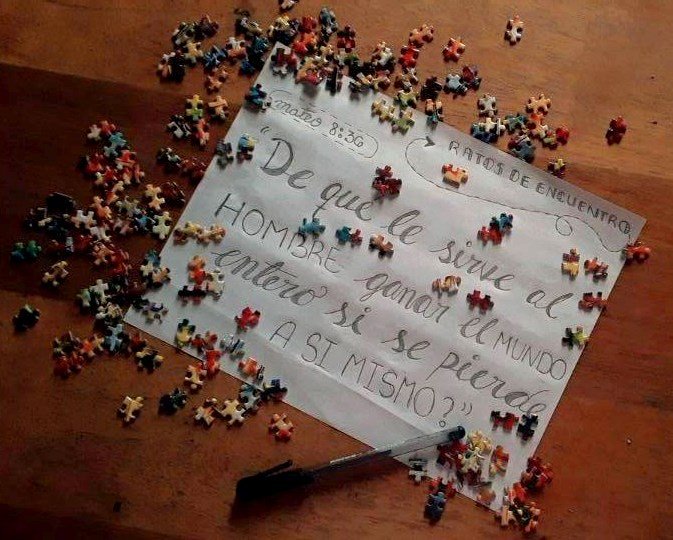 mateo 8:36
RATOS DE ENCUENTRO
"De que le sirve al
HOMBRE ganar el MUNDO
entero si se pierde
A SI MISMO?"